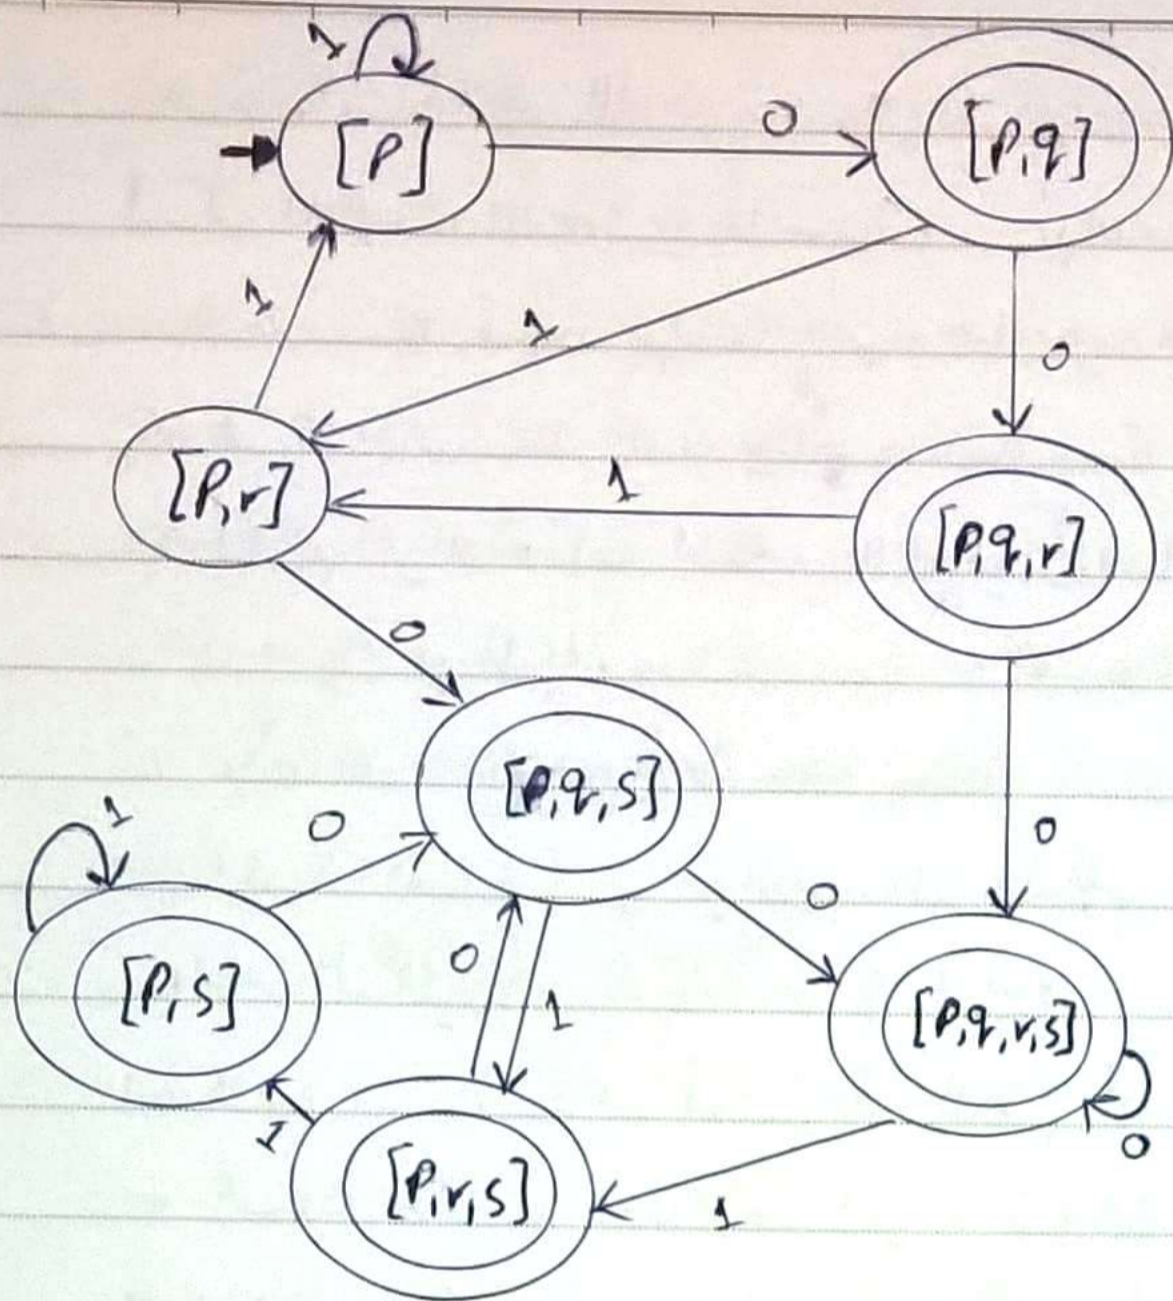 1
[P] 0 [P,q]
1 1 0
[P,r] 1 [P,q,r]
0
[P,q,s]
1 0 0
0
[P,s] 0 1 [P,q,r,s]
1 [P,r,s] 1 0